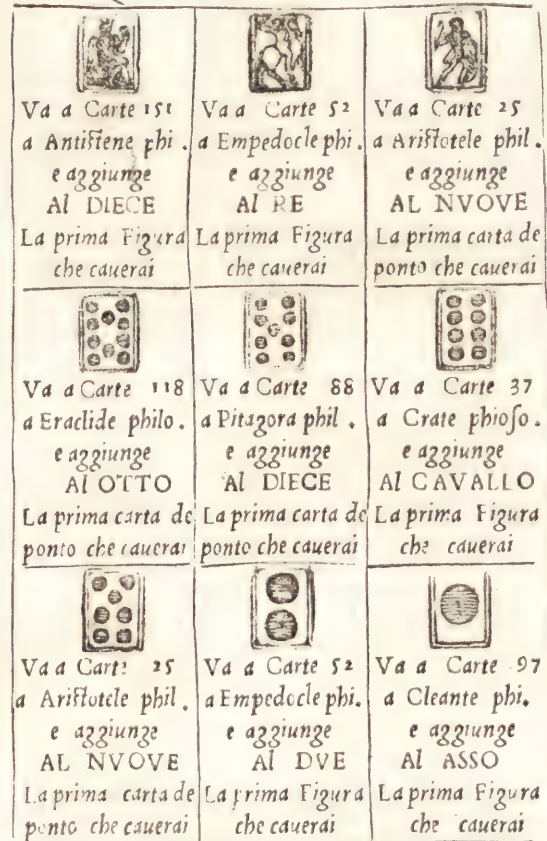 Va a Carte 151
a Antiſtene phi.
e aggiunge
Al DIECE
La prima Figura
che cauerai
Va a Carte 52
a Empedocle phi.
e aggiunge
Al RE
La prima Figura
che cauerai
Va a Carte 25
a Ariſtotele phil.
e aggiunge
AL NVOVE
La prima carta de
ponto che cauerai
Va a Carte 118
a Eraclide philo.
e aggiunge
Al OTTO
La prima carta de
ponto che cauerai
Va a Carte 88
a Pitagora phil.
e aggiunge
Al DIECE
La prima carta de
ponto che cauerai
Va a Carte 37
a Crate phioſo.
e aggiunge
Al CAVALLO
La prima Figura
che cauerai
Va a Carte 25
a Ariſtotele phil.
e aggiunge
AL NVOVE
La prima carta de
ponto che cauerai
Va a Carte 52
a Empedocle phi.
e aggiunge
Al DVE
La prima Figura
che cauerai
Va a Carte 97
a Cleante phi.
e aggiunge
Al ASSO
La prima Figura
che cauerai